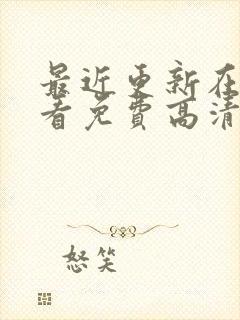 最近更新在
看免费高清
怒笑